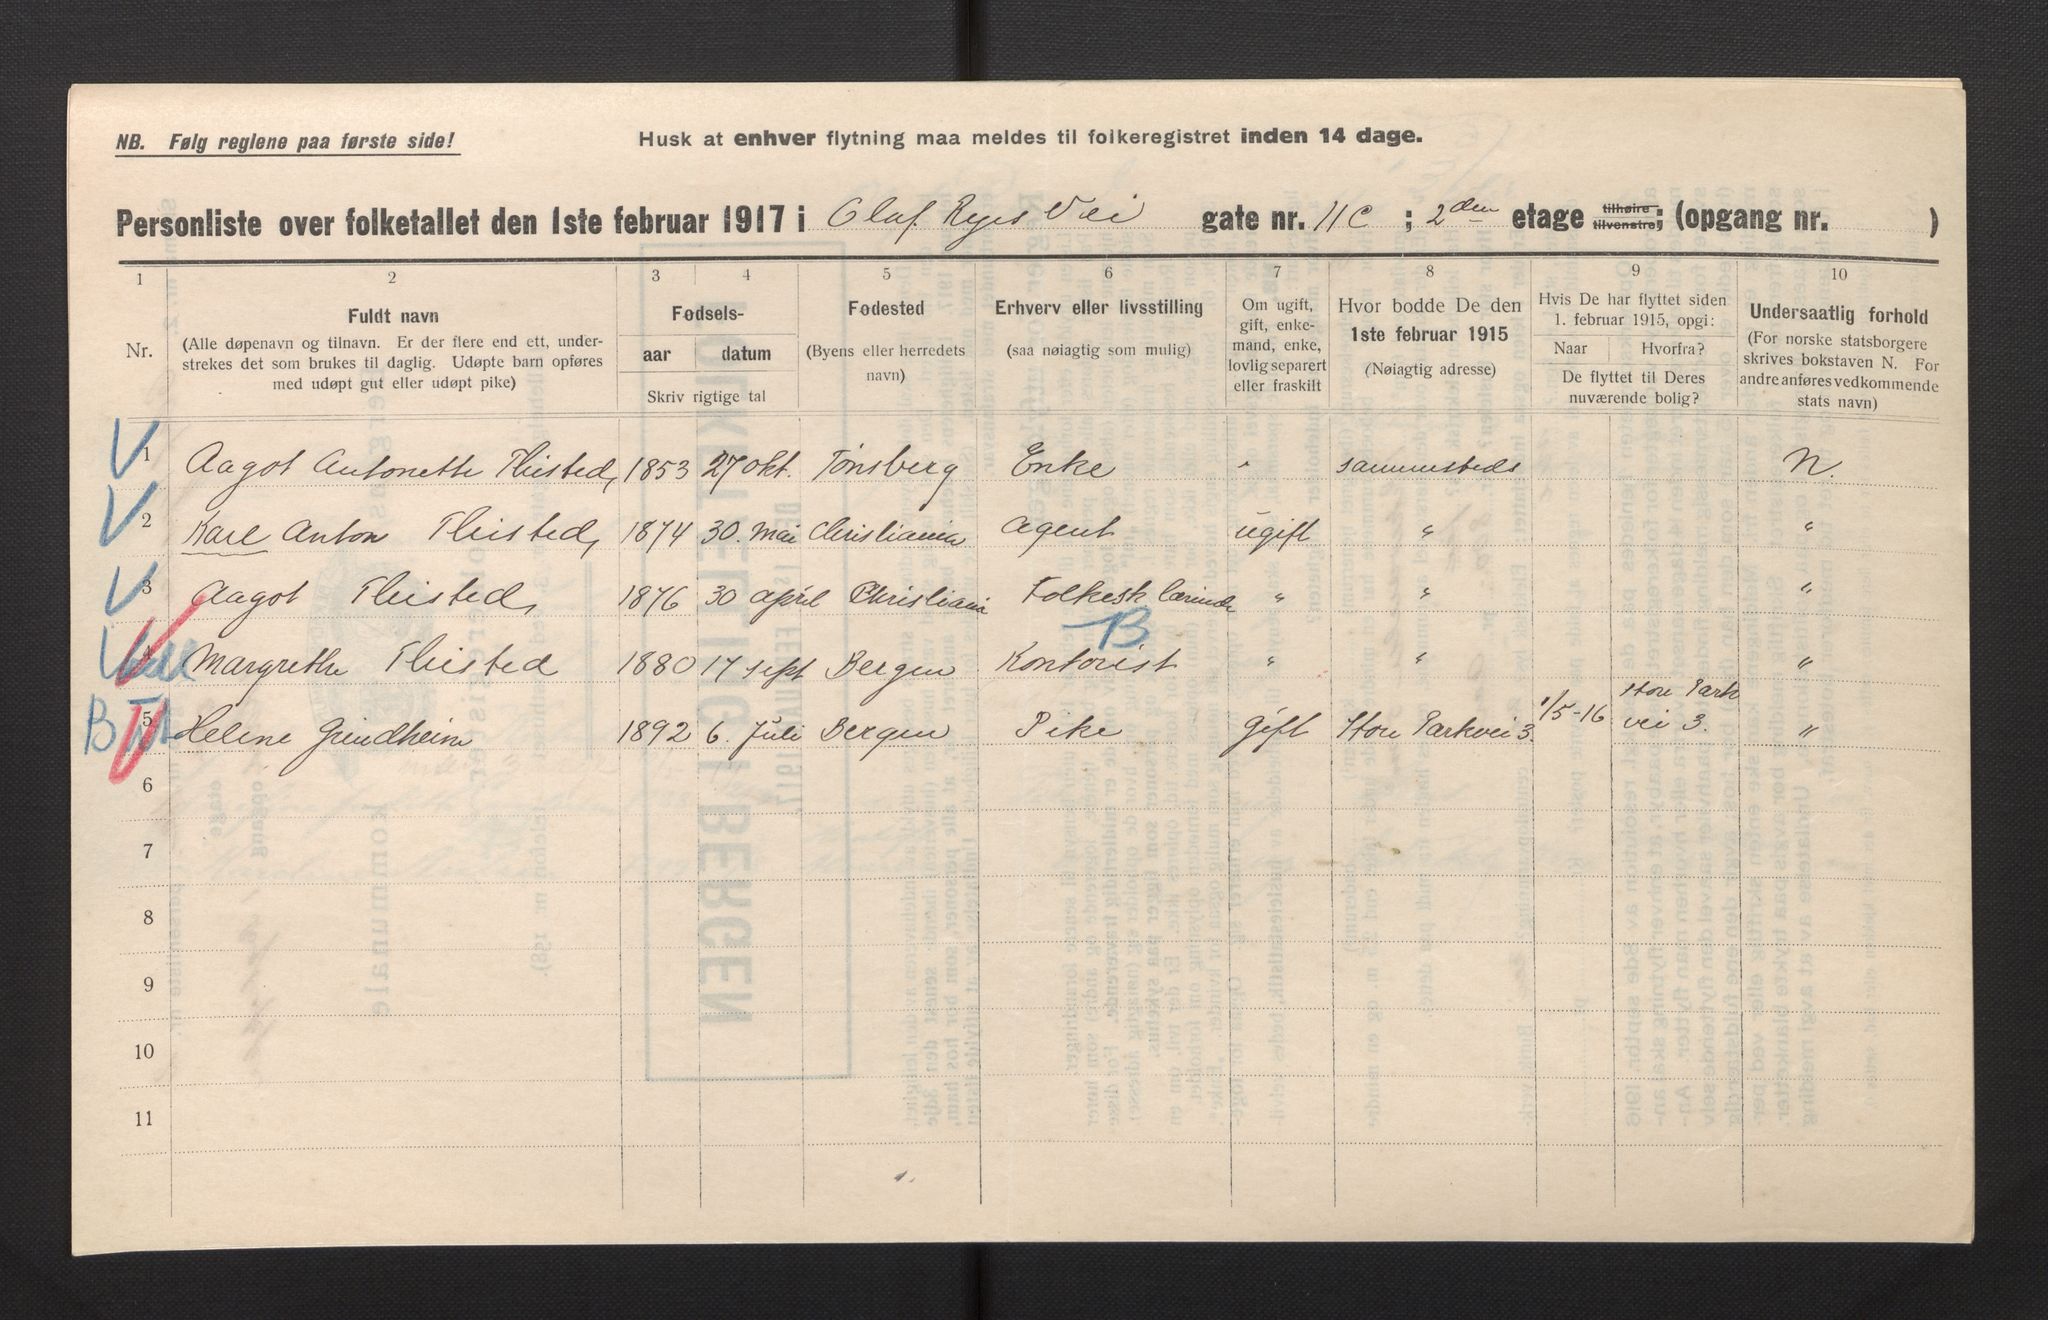 NB. Følg reglene paa første side!
Husk at enhver flytning maa meldes til folkeregistret inden 14 dage.
Personliste over folketallet den 1ste februar 1917 i Olaf Ryes Vei gate nr. 11C ; 2den etage tilhøire tilvenstre; (opgang nr. )
1 2 3 4 5 6 7 8 9 10
Nr.
Fuldt navn
(Alle døpenavn og tilnavn. Er der flere end ett, under-
strekes det som brukes til daglig. Udøpte barn opføres
med udøpt gut eller udøpt pike)
Fødsels-
aar datum
Skriv rigtige tal
Fødested
(Byens eller herredets
navn)
Erhverv eller livsstilling
(saa nøiagtig som mulig)
Om ugift,
gift, enke-
mand, enke,
lovlig separert
eller fraskilt
Hvor bodde De den
1ste februar 1915
(Nøiagtig adresse)
Hvis De har flyttet siden
1. februar 1915, opgi:
Naar Hvorfra?
De flyttet til Deres
nuværende bolig?
Undersaatlig forhold
(For norske statsborgere
skrives bokstaven N. For
andre anføres vedkommende
stats navn)
1 Aagot Antonette 1853 27 okt. Tønsberg Enke sammesteds N.
2 Karl Anton 1874 30. Mai Christiania Agent ugift " "
3 Aagot 1876 30 april Christiania Folkesk lærinde " " "
B
4 Margrethe 1880 17 sept Bergen Kontorist " " "
5 Helene Grindheim 1892 6. Juli Bergen Pike gift Store Parkvei 3. 1/5-16 Store Park
vei 3. "
6
7
8
9
10
11